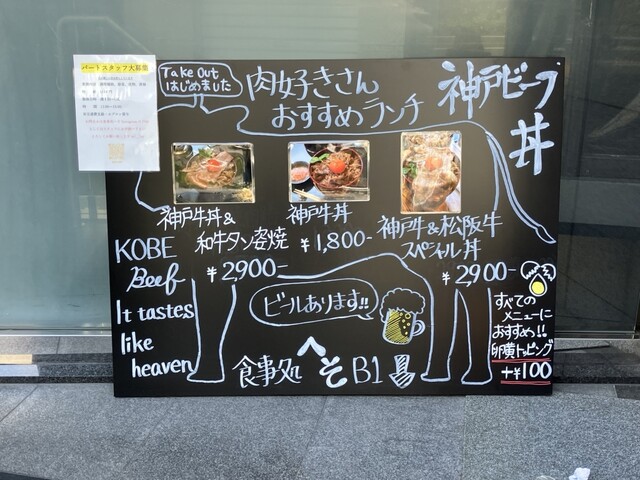 パートスタッフ大募集
Take Out
はじめました
肉好きさん
おすすめランチ
神戸ビーフ
丼
神戸牛丼&
和牛タン姿焼
¥2,900-
神戸牛丼
¥1,800-
神戸牛&松阪牛
スペシャル丼
¥2,900-
KOBE
Beef
It tastes
like
heaven
ビールあります!!
すべての
メニューに
おすすめ!!
卵黄トッピング
+¥100
食事処 へそ B1